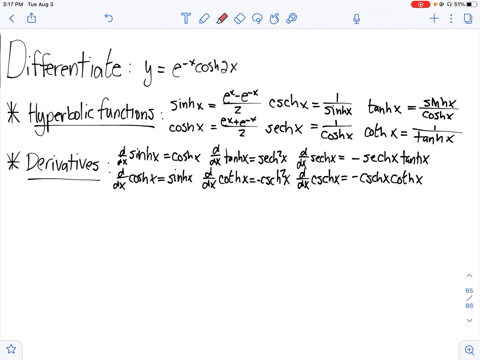 3:17 PM Tue Aug 3 51%
Differentiate: y = e^-x cosh2x
* Hyperbolic functions: sinhx = (e^x - e^-x)/2 cschx = 1/sinhx tanhx = sinhx/coshx
coshx = (e^x + e^-x)/2 sechx = 1/coshx cothx = 1/tanhx
* Derivatives: d/dx sinhx = coshx d/dx tanhx = sech²x d/dx sechx = -sechxtanhx
d/dx coshx = sinhx d/dx cothx = -csch²x d/dx cschx = -cschxcothx
65
/
86